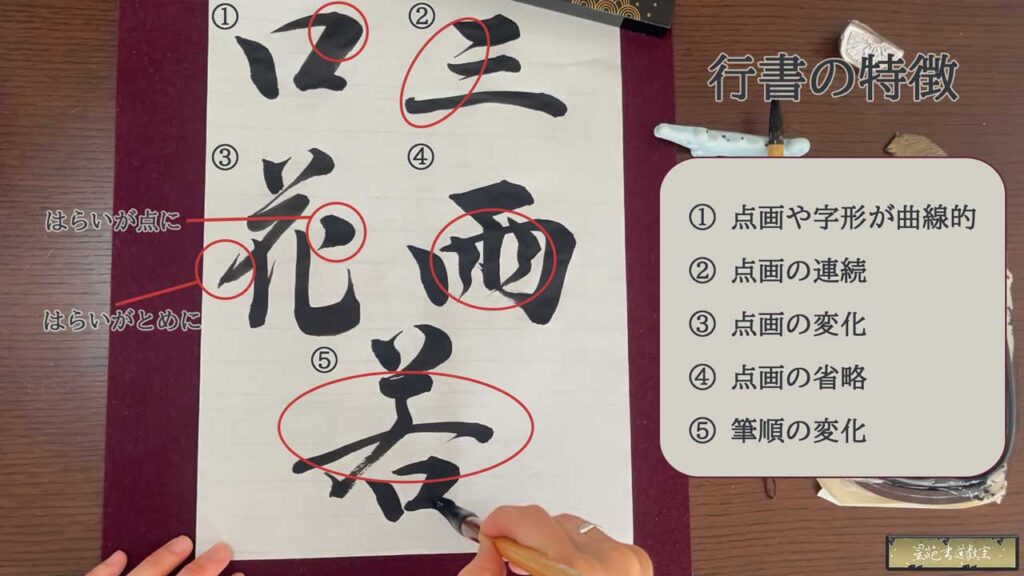 行書の特徴
① 口
② 三
③ 花
④ 雨
⑤ 若
はらいが点に
はらいがとめに
① 点画や字形が曲線的
② 点画の連続
③ 点画の変化
④ 点画の省略
⑤ 筆順の変化
書道教室